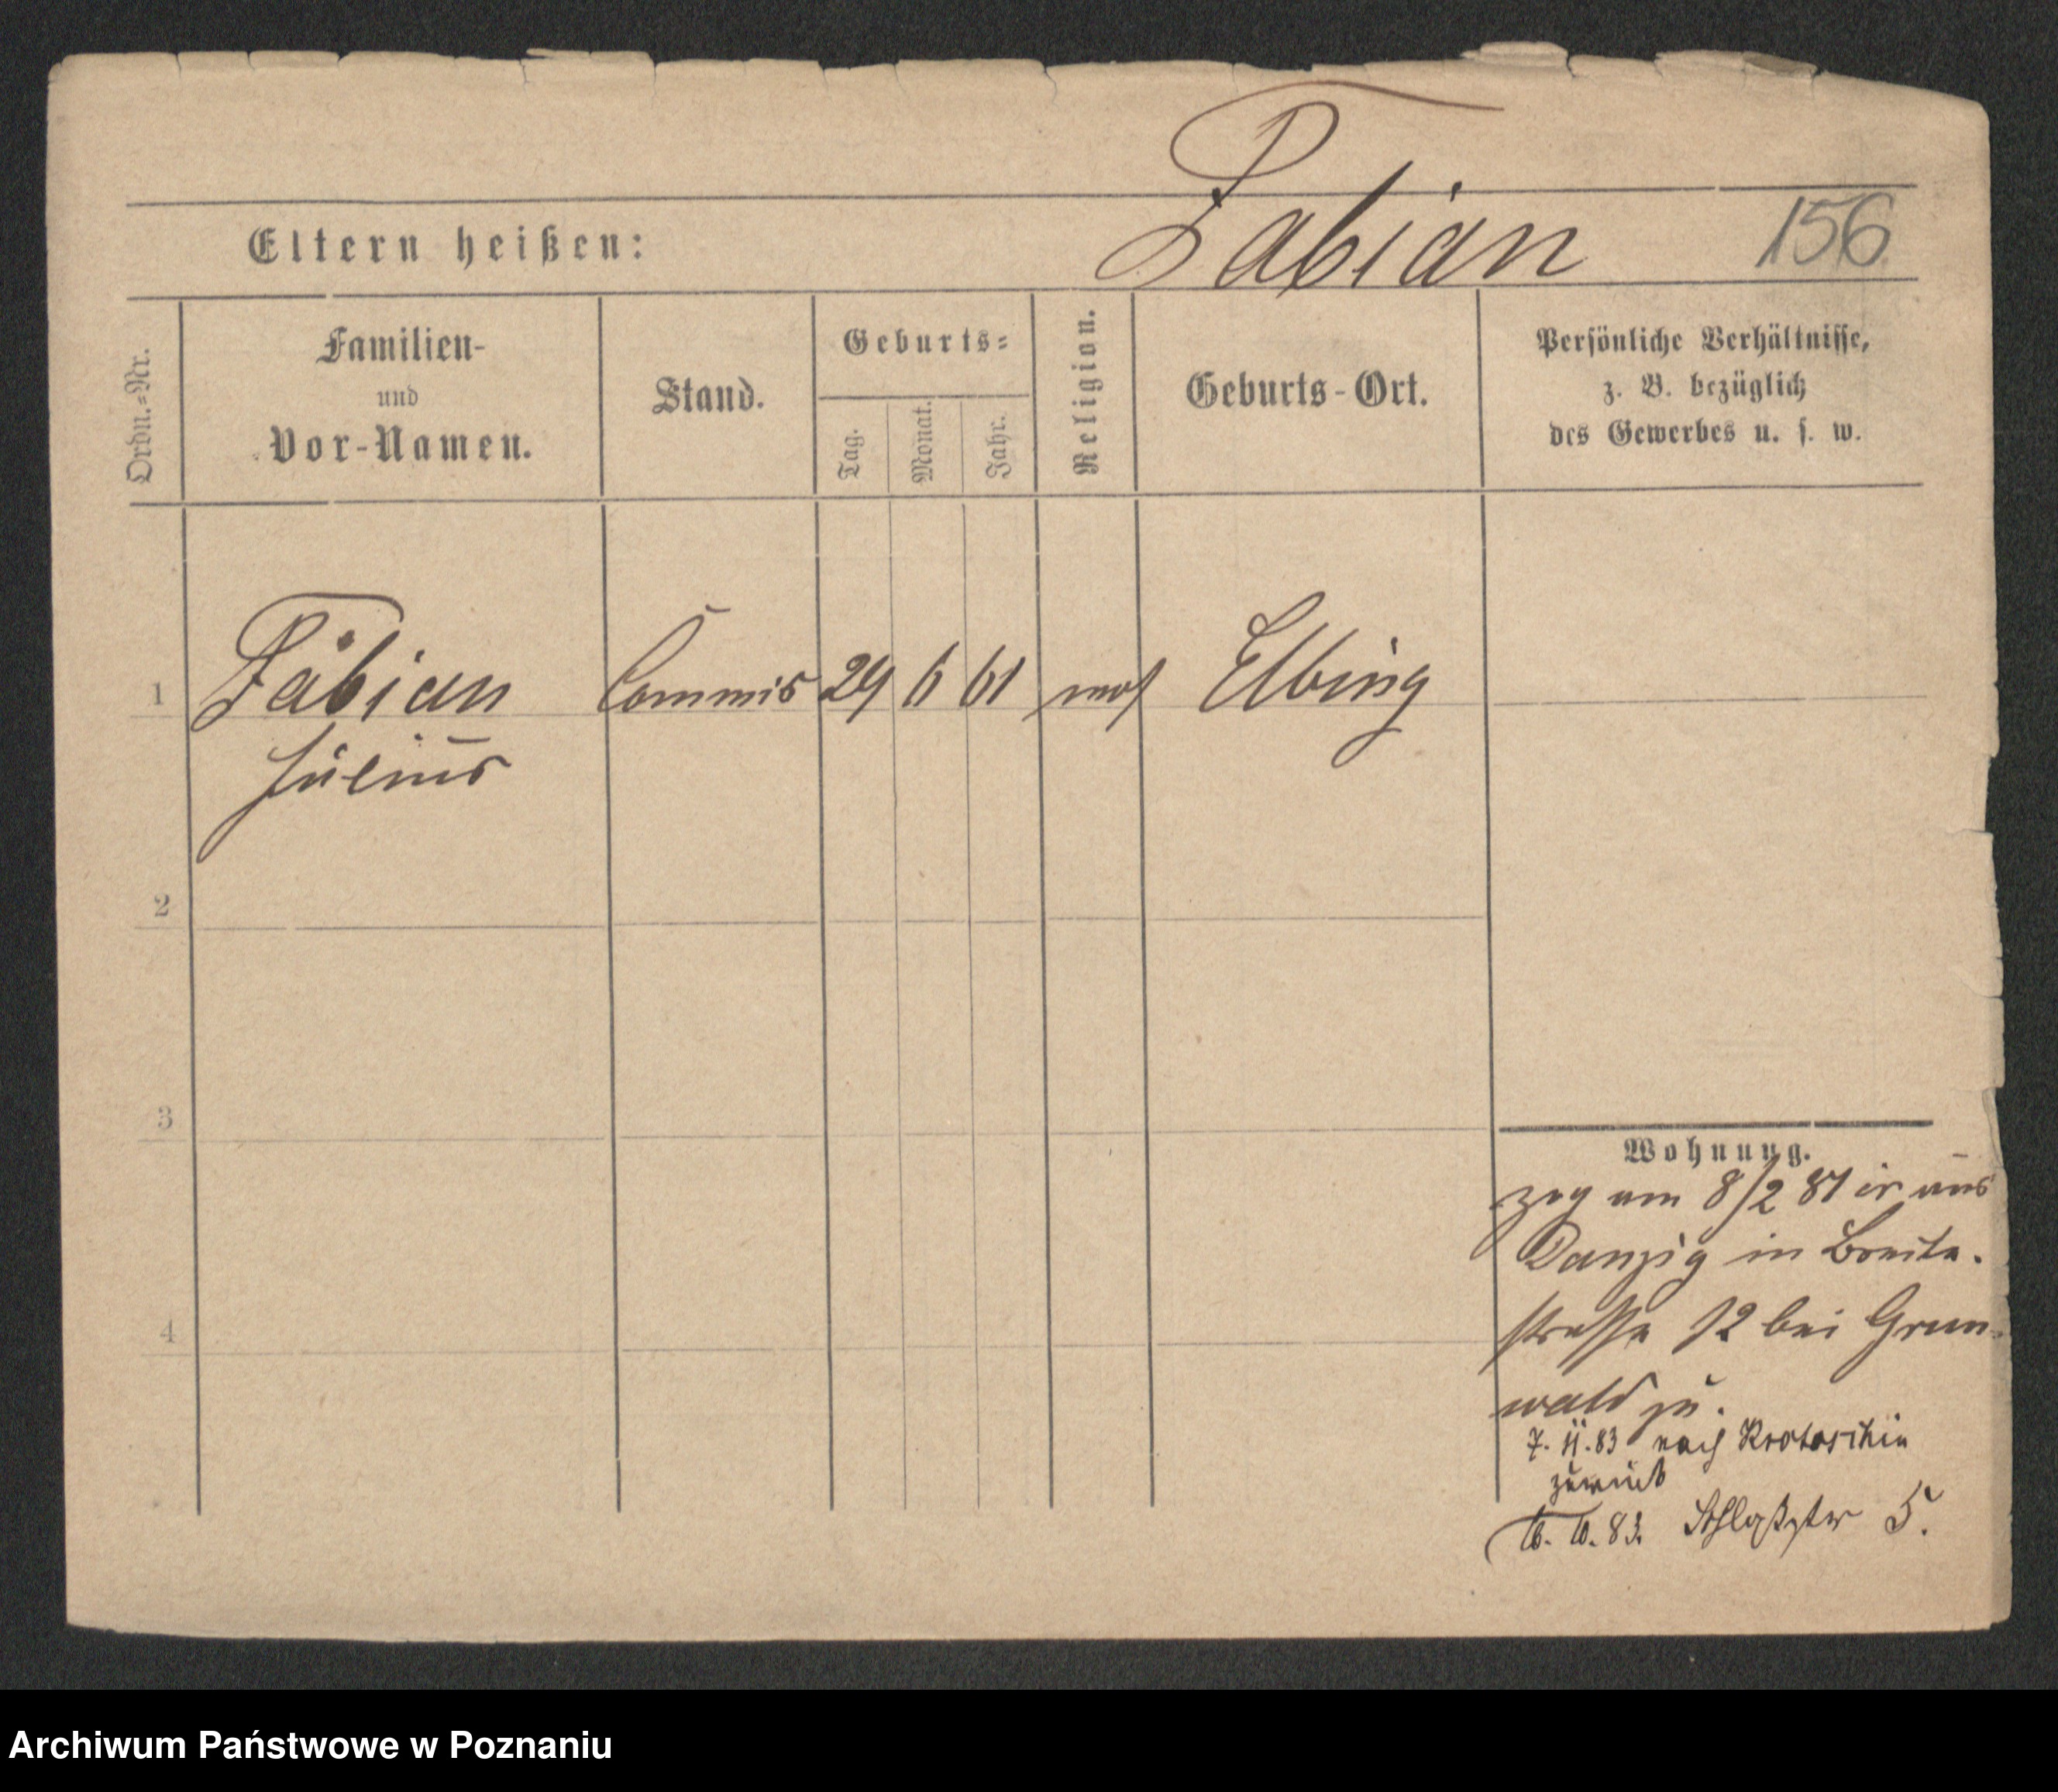 Fabian 156
Eltern heißen:
Ordn.-Nr.
Familien-
und
Vor-Namen.
Stand.
Geburts-
Tag.
Monat.
Jahr.
Religion.
Geburts-Ort.
Persönliche Verhältnisse,
z. B. bezüglich
des Gewerbes u. s. w.
1 Fabian Commis 29 6 61 mos Elbing
Julius
2
3
4
Wohnung.
zog am 8/2 81 aus
Danzig in Breite-
strasse 12 bei Grun-
wald zu.
7. 11. 83 nach Krotoschin
zurück
83. Schloßstr 5.
Archiwum Państwowe w Poznaniu